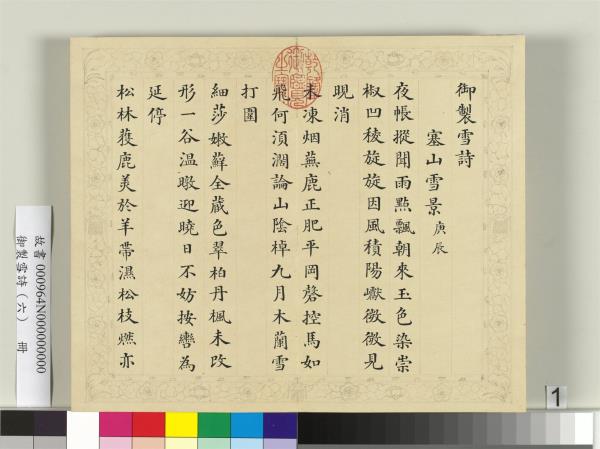 御製雪詩
塞山雪景庚辰
夜帳摐聞雨點飄朝來玉色染崇
椒凹稜旋旋因風積陽巘微微見
晛消
未凍烟蕪鹿正肥平岡磬控馬如
飛何須濶論山陰棹九月木蘭雪
打圍
細莎嫩蘚全藏色翠柏丹楓未改
形一谷溫暾迎曉日不妨按轡為
延停
松林獲鹿美於羊帶濕松枝燃亦
故書 000964N000000000
御製雪詩(六) 冊
1